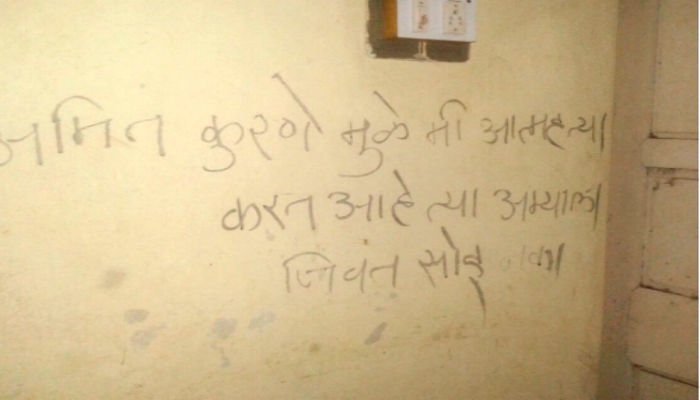 अमित कुरणे मुळे मी आत्महत्या
करत आहे त्या अम्याला
जिवंत सोडू नका